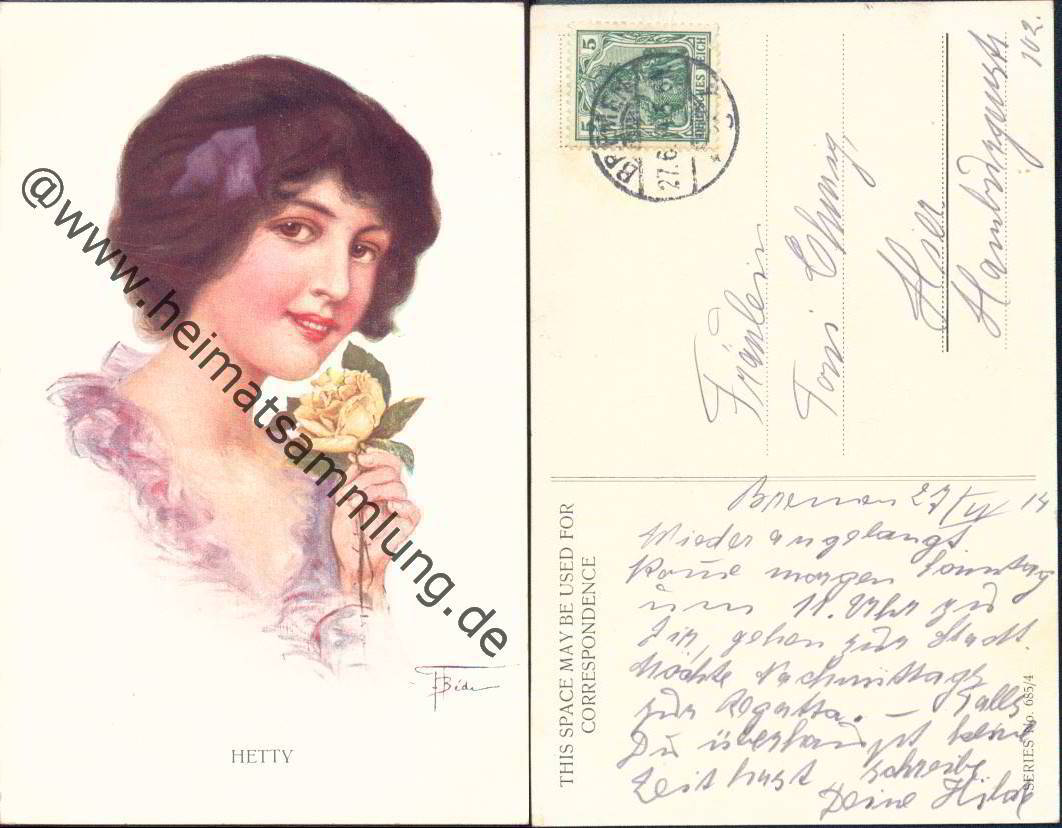 @www.heimatsammlung.de
F Béda
HETTY
5
DEUTSCHES REICH
BREMEN
27.6
Fräulein
Toni
Hier
Hamburgerstr
102.
THIS SPACE MAY BE USED FOR
CORRESPONDENCE
Bremen 27/VI 14
Wieder angelangt
Kome morgen Sonntag
um 11. Uhr zu
Dir, gehen zur Stadt.
Möchte Nachmittags
zur Regatta. — Falls
Du überhaupt keine
Zeit hast schreibe
Deine Hilde
SERIES No. 685/4